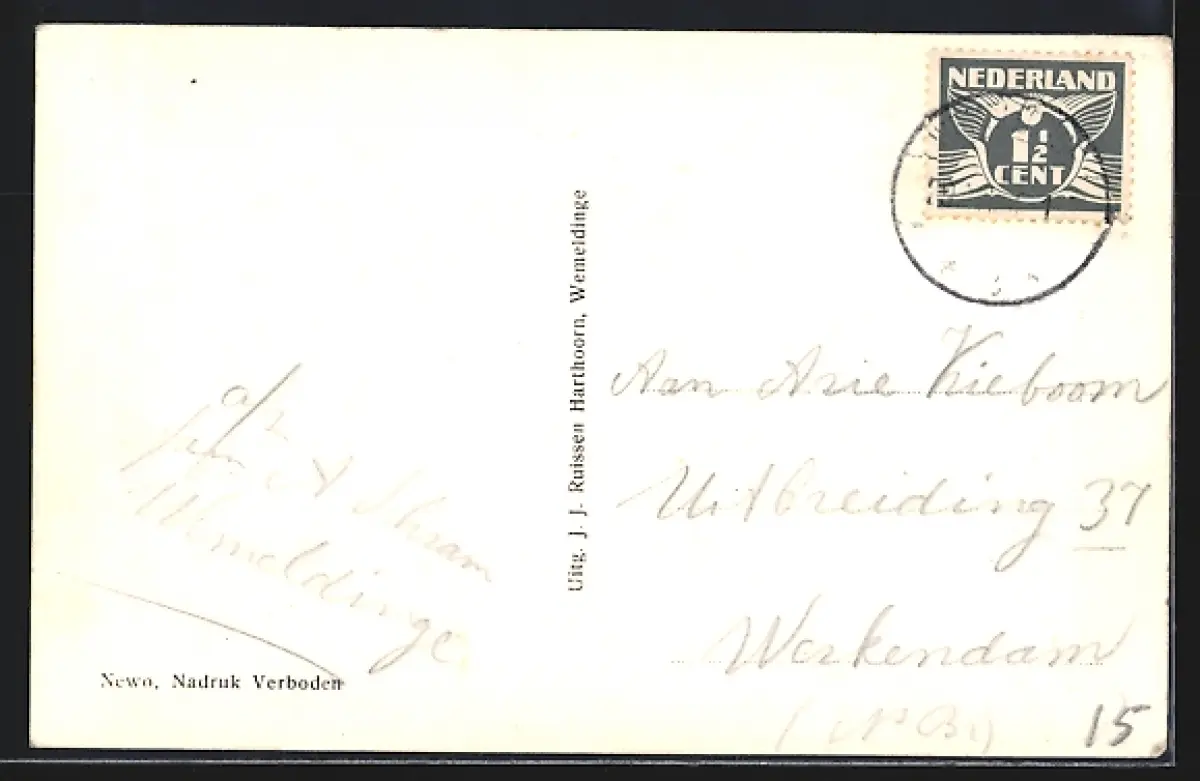 NEDERLAND
1 1/2
CENT
Uitg. J. J. Ruissen Harthoorn, Wemeldinge
Aan Arie Kieboom
Uitbreiding 37
Werkendam
(N Br)
15
a/z
A Schram
Wemeldinge
Newo, Nadruk Verboden